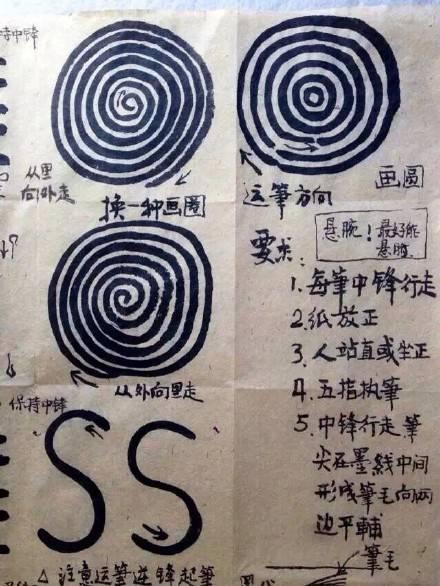 保持中锋
从里
向外走
换一种画圈
运筆方向
画圓
悬腕！最好能
悬肘
要求：
1. 每筆中锋行走
2. 纸放正
3. 人站直或坐正
4. 五指执筆
5. 中锋行走筆
尖在墨线中间
形成筆毛向两
边平輔
筆毛
从外向里走
保持中锋
△ 注意运筆逆锋起筆